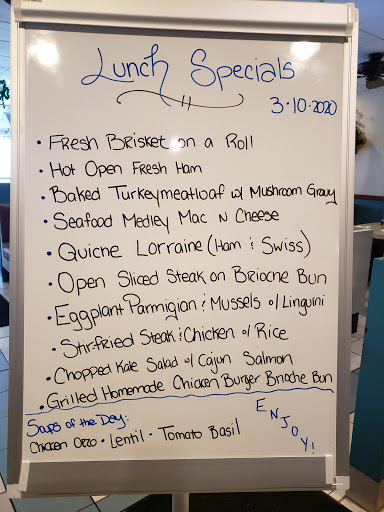 Lunch Specials
3·10·2020
• Fresh Brisket on a Roll
• Hot Open Fresh Ham
• Baked Turkeymeatloaf w/ Mushroom Gravy
• Seafood Medley Mac N Cheese
• Quiche Lorraine (Ham & Swiss)
• Open Sliced Steak on Brioche Bun
• Eggplant Parmigian & Mussels o/ Linguini
• Stirfried Steak & Chicken o/ Rice
• Chopped Kale Salad w/ Cajun Salmon
• Grilled Homemade Chicken Burger Brioche Bun
Soups of the Day:
Chicken Orzo · Lentil · Tomato Basil
ENJOY!